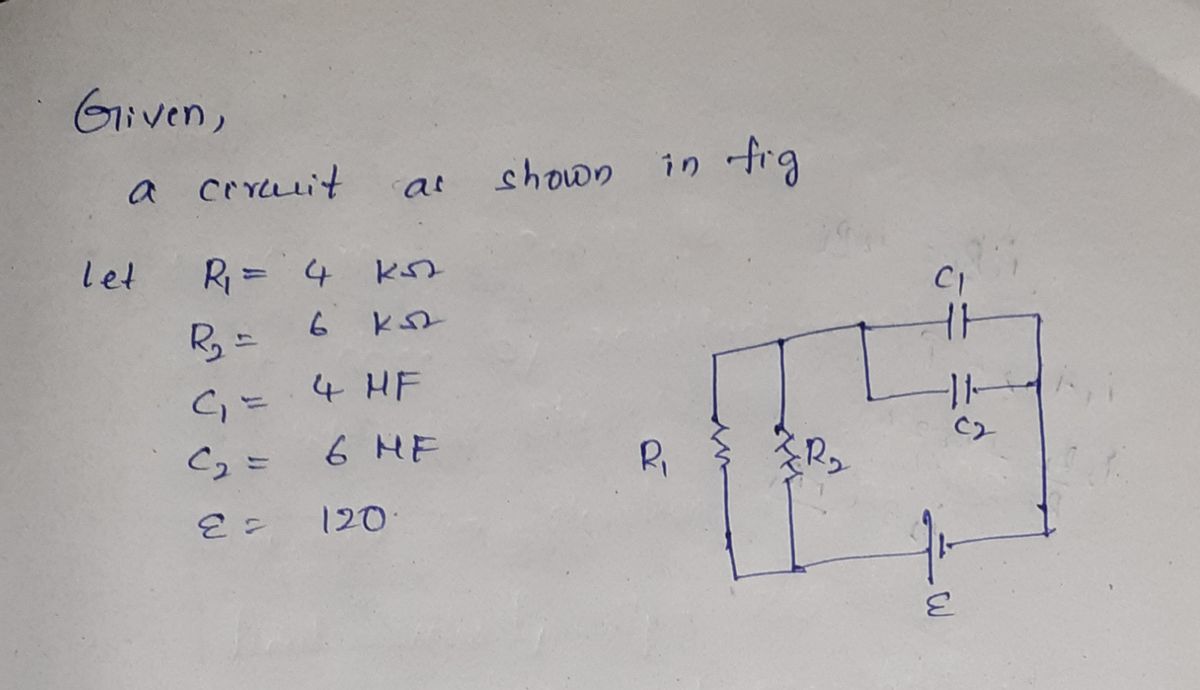 Given,
a circuit as shown in fig
let R₁ = 4 KΩ
R₂ = 6 KΩ
C₁ = 4 MF
C₂ = 6 MF
ε = 120
C₁
C₂
R₁
R₂
ε